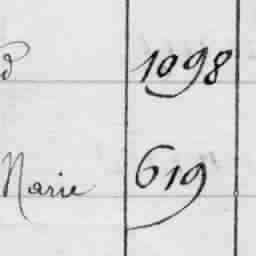 d 1098
Marie 619